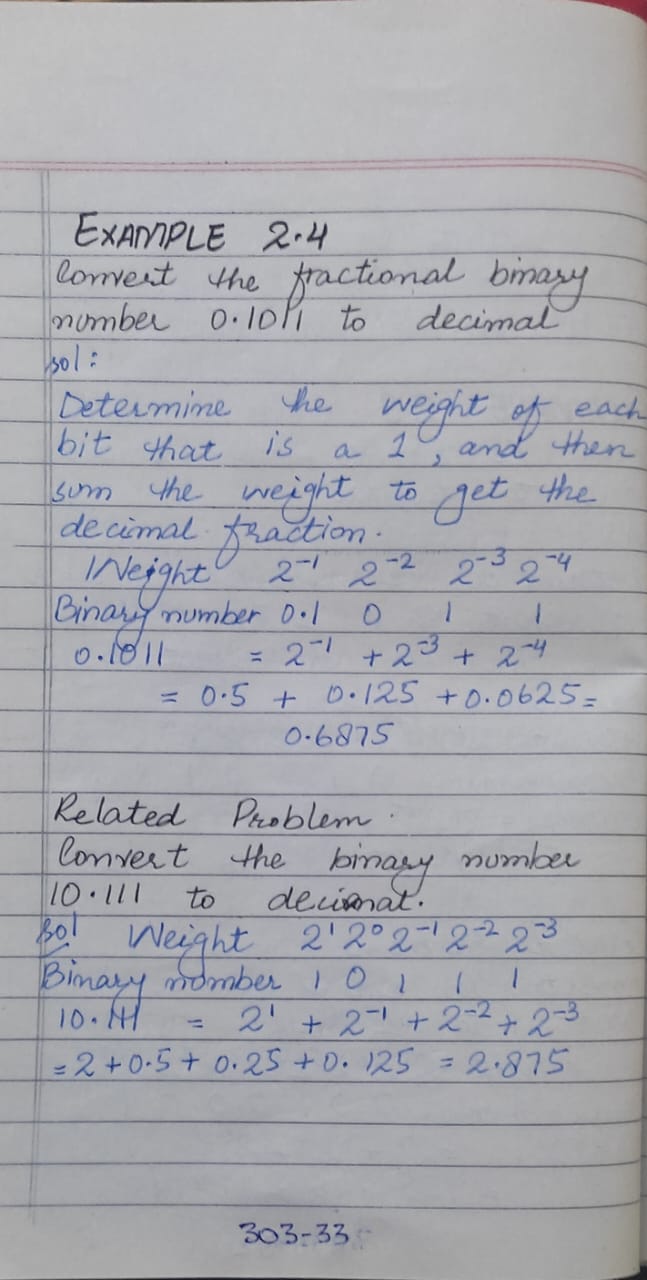 EXAMPLE 2.4
Convert the fractional binary
number 0.1011 to decimal
sol:
Determine the weight of each
bit that is a 1, and then
sum the weight to get the
decimal fraction.
Weight 2⁻¹ 2⁻² 2⁻³ 2⁻⁴
Binary number 0.1 0 1 1
0.1011 = 2⁻¹ + 2⁻³ + 2⁻⁴
= 0.5 + 0.125 + 0.0625 =
0.6875
Related Problem.
Convert the binary number
10.111 to decimal.
sol Weight 2¹ 2⁰ 2⁻¹ 2⁻² 2⁻³
Binary number 1 0 1 1 1
10.111 = 2¹ + 2⁻¹ + 2⁻² + 2⁻³
= 2 + 0.5 + 0.25 + 0.125 = 2.875
303-33